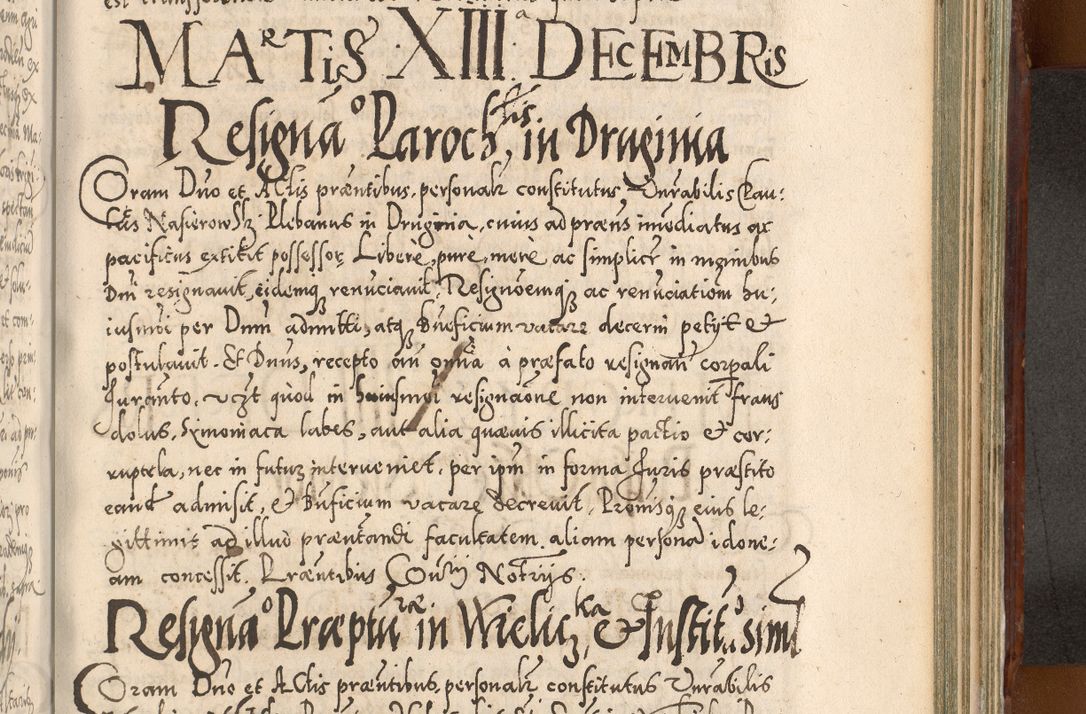 MARTIS XIII DECEMBRIS
Resignao Paroch.lis in Druginia
Coram Dno et Actis præntibus, personalr constitutus Vnrabilis Clau:
Nasierowskj Plebanus in Druginia, cuius ad præns imediatus ac
pacificus extitit possessor, Liberè, purè, merè ac simplicr in manibus
Dni resignavit, eidemq renunciavit, Resignoemq ac renunciationem hu:
iusmoi per Dnm admitti, atq Bneficium vacare decerni petijt &
postulauit. Et Dnus, recepto an omnia à præfato resignan corpali
Juranto, vczt quòd in huiusmoi resignaone non intervenit fraus
dolus, Symoniaca labes, aut alia quævis illicita pactio & cor:
ruptela, nec in futuz interveniet, per ipm in forma Juris præstito
eand admisit, & Bnficium vacare decrevit, Promisq eius le:
gittimis ad illud præntandi facultatem aliam persona idone:
am concessit. Præntibus Notrijs.
Resignao Præptu ræ in Wielicz ka & Institu simul
Coram Dno et Actis præntibus, personalr constitutus Vnrabilis